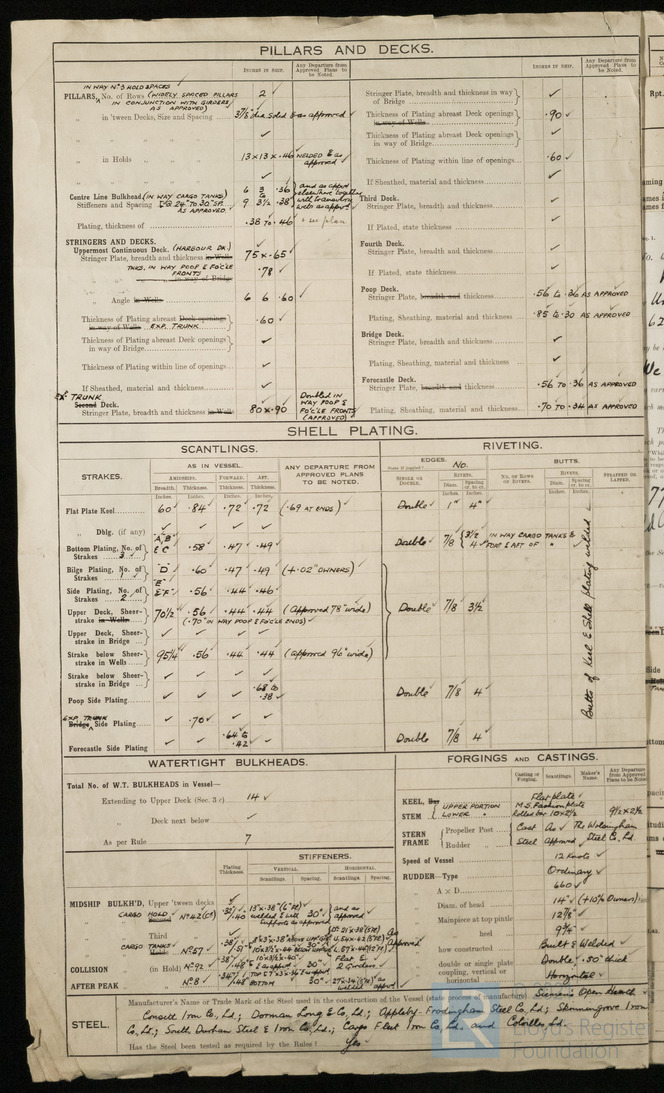 PILLARS AND DECKS.
INCHES IN SHIP.
Any Departure from Approved Plans to be Noted.
INCHES IN SHIP.
Any Departure from Approved Plans to be Noted.
IN WAY Nº3 HOLD SPACES
PILLARS, No. of Rows (WIDELY SPACED PILLARS 2
IN CONJUNCTION WITH GIRDERS
AS APPROVED)
in 'tween Decks, Size and Spacing 3 7/8 dia solid & as approved
in Holds 13 x 13 x .46 WELDED & as approved
Centre Line Bulkhead (IN WAY CARGO TANKS)
Stiffeners and Spacing 24" TO 30" SP. 9 3½ .38
AS APPROVED
Plating, thickness of .38 TO .46 & see plan
STRINGERS AND DECKS.
Uppermost Continuous Deck. (HARBOUR DK.)
Stringer Plate, breadth and thickness in Wells 75 x .65
TNKS. IN WAY POOP & FOCLE FRONTS .78
in way of Bridge
Angle in Wells 6 6 .60
Thickness of Plating abreast Deck openings
in way of Wells EXP. TRUNK .60
Thickness of Plating abreast Deck openings
in way of Bridge
Thickness of Plating within line of openings
If Sheathed, material and thickness
EXP. TRUNK
Second Deck.
Stringer Plate, breadth and thickness in Wells 80 x .90
Doubled IN WAY POOP & FO'C'LE FRONTS (APPROVED)
Stringer Plate, breadth and thickness in way
of Bridge
Thickness of Plating abreast Deck openings
in way of Wells .90
Thickness of Plating abreast Deck openings
in way of Bridge
Thickness of Plating within line of openings .60
If Sheathed, material and thickness
Third Deck.
Stringer Plate, breadth and thickness
If Plated, state thickness
Fourth Deck.
Stringer Plate, breadth and thickness
If Plated, state thickness
Poop Deck.
Stringer Plate, breadth and thickness .56 to .36 AS APPROVED
Plating, Sheathing, material and thickness .85 to .30 AS APPROVED
Bridge Deck.
Stringer Plate, breadth and thickness
Plating, Sheathing, material and thickness
Forecastle Deck.
Stringer Plate, breadth and thickness .56 TO .36 AS APPROVED
Plating, Sheathing, material and thickness .70 TO .34 AS APPROVED
SHELL PLATING.
SCANTLINGS.
RIVETING.
STRAKES.
AS IN VESSEL.
ANY DEPARTURE FROM APPROVED PLANS TO BE NOTED.
AMIDSHIPS. FORWARD. AFT.
Breadth. Thickness. Thickness. Thickness.
Inches. Inches. Inches. Inches.
EDGES. No.
State if joggled?
SINGLE OR DOUBLE.
RIVETS.
Diam. Spacing cr. to cr.
Inches. Inches.
BUTTS.
NO. OF ROWS OF RIVETS.
RIVETS.
Diam. Spacing cr. to cr.
Inches. Inches.
STRAPPED OR LAPPED.
Flat Plate Keel 60 .84 .72 .72 (.69 AT ENDS) Double 1" 4"
" Dblg. (if any)
Bottom Plating, No. of Strakes 3 A, B & C .58 .47 .49 Double 7/8 3½ IN WAY CARGO TANKS &
4 FOR'D & AFT OF "
Bilge Plating, No. of Strakes 1 "D" .60 .47 .49 (+.02" OWNERS)
Side Plating, No. of Strakes 2 "E" & "F" .56 .44 .46
Upper Deck, Sheer-strake in Wells 70½ .56 .44 .44 (Approved 78" wide) Double 7/8 3½
(.70" IN WAY POOP & FO'C'LE ENDS)
Upper Deck, Sheer-strake in Bridge
Strake below Sheer-strake in Wells 95¼ .56 .44 .44 (approved 96" wide)
Strake below Sheer-strake in Bridge
Poop Side Plating .68 to .38 Double 7/8 4
EXP. TRUNK
Bridge Side Plating .70
Forecastle Side Plating .64 to .42 Double 7/8 4
Butts of Keel & Shell plating welded
WATERTIGHT BULKHEADS.
Total No. of W.T. BULKHEADS in Vessel—
Extending to Upper Deck (Sec. 3 c) 14
" Deck next below
As per Rule 7
Plating Thickness.
STIFFENERS.
VERTICAL.
HORIZONTAL.
Scantlings. Spacing.
Scantlings. Spacing.
MIDSHIP BULKH'D, Upper 'tween decks
CARGO HOLD Nº42 (CF) 30" and as approved
Third
CARGO TANKS Nº57
COLLISION (in Hold) Nº92
AFTER PEAK Nº8 BOTTOM 30"
FORGINGS AND CASTINGS.
Casting or Forging.
Scantlings.
Maker's Name.
Any Departure from Approved Plans to be Noted.
KEEL, Bar Flat plate
STEM UPPER PORTION M.S. Fashion plate
LOWER " rolled bar 10 x 2½ 9½ x 2½
STERN FRAME Propeller Post Cast As The Wolsingham
Rudder " Steel approved Steel Co. Ld.
Speed of Vessel 12 Knots
RUDDER—Type Ordinary
" A x D 660
" Diam. of head 14" (+10% Owners)
" Mainpiece at top pintle 12 7/8"
" " heel 9¾"
" how constructed Built & Welded
" double or single plate Double .50" thick
" coupling, vertical or horizontal Horizontal
STEEL.
Manufacturer's Name or Trade Mark of the Steel used in the construction of Vessel (state process of manufacture) Siemens Open Hearth
Consett Iron Co., Ld.; Dorman Long & Co, Ld.; Appleby-Frodingham Steel Co. Ld; Skinningrove Iron
Co., Ld.; South Durham Steel & Iron Co., Ld.; Cargo Fleet Iron Co. Ld. and Colvilles Ld.
Has the Steel been tested as required by the Rules? Yes
Lloyd's Register
Foundation
Rpt.